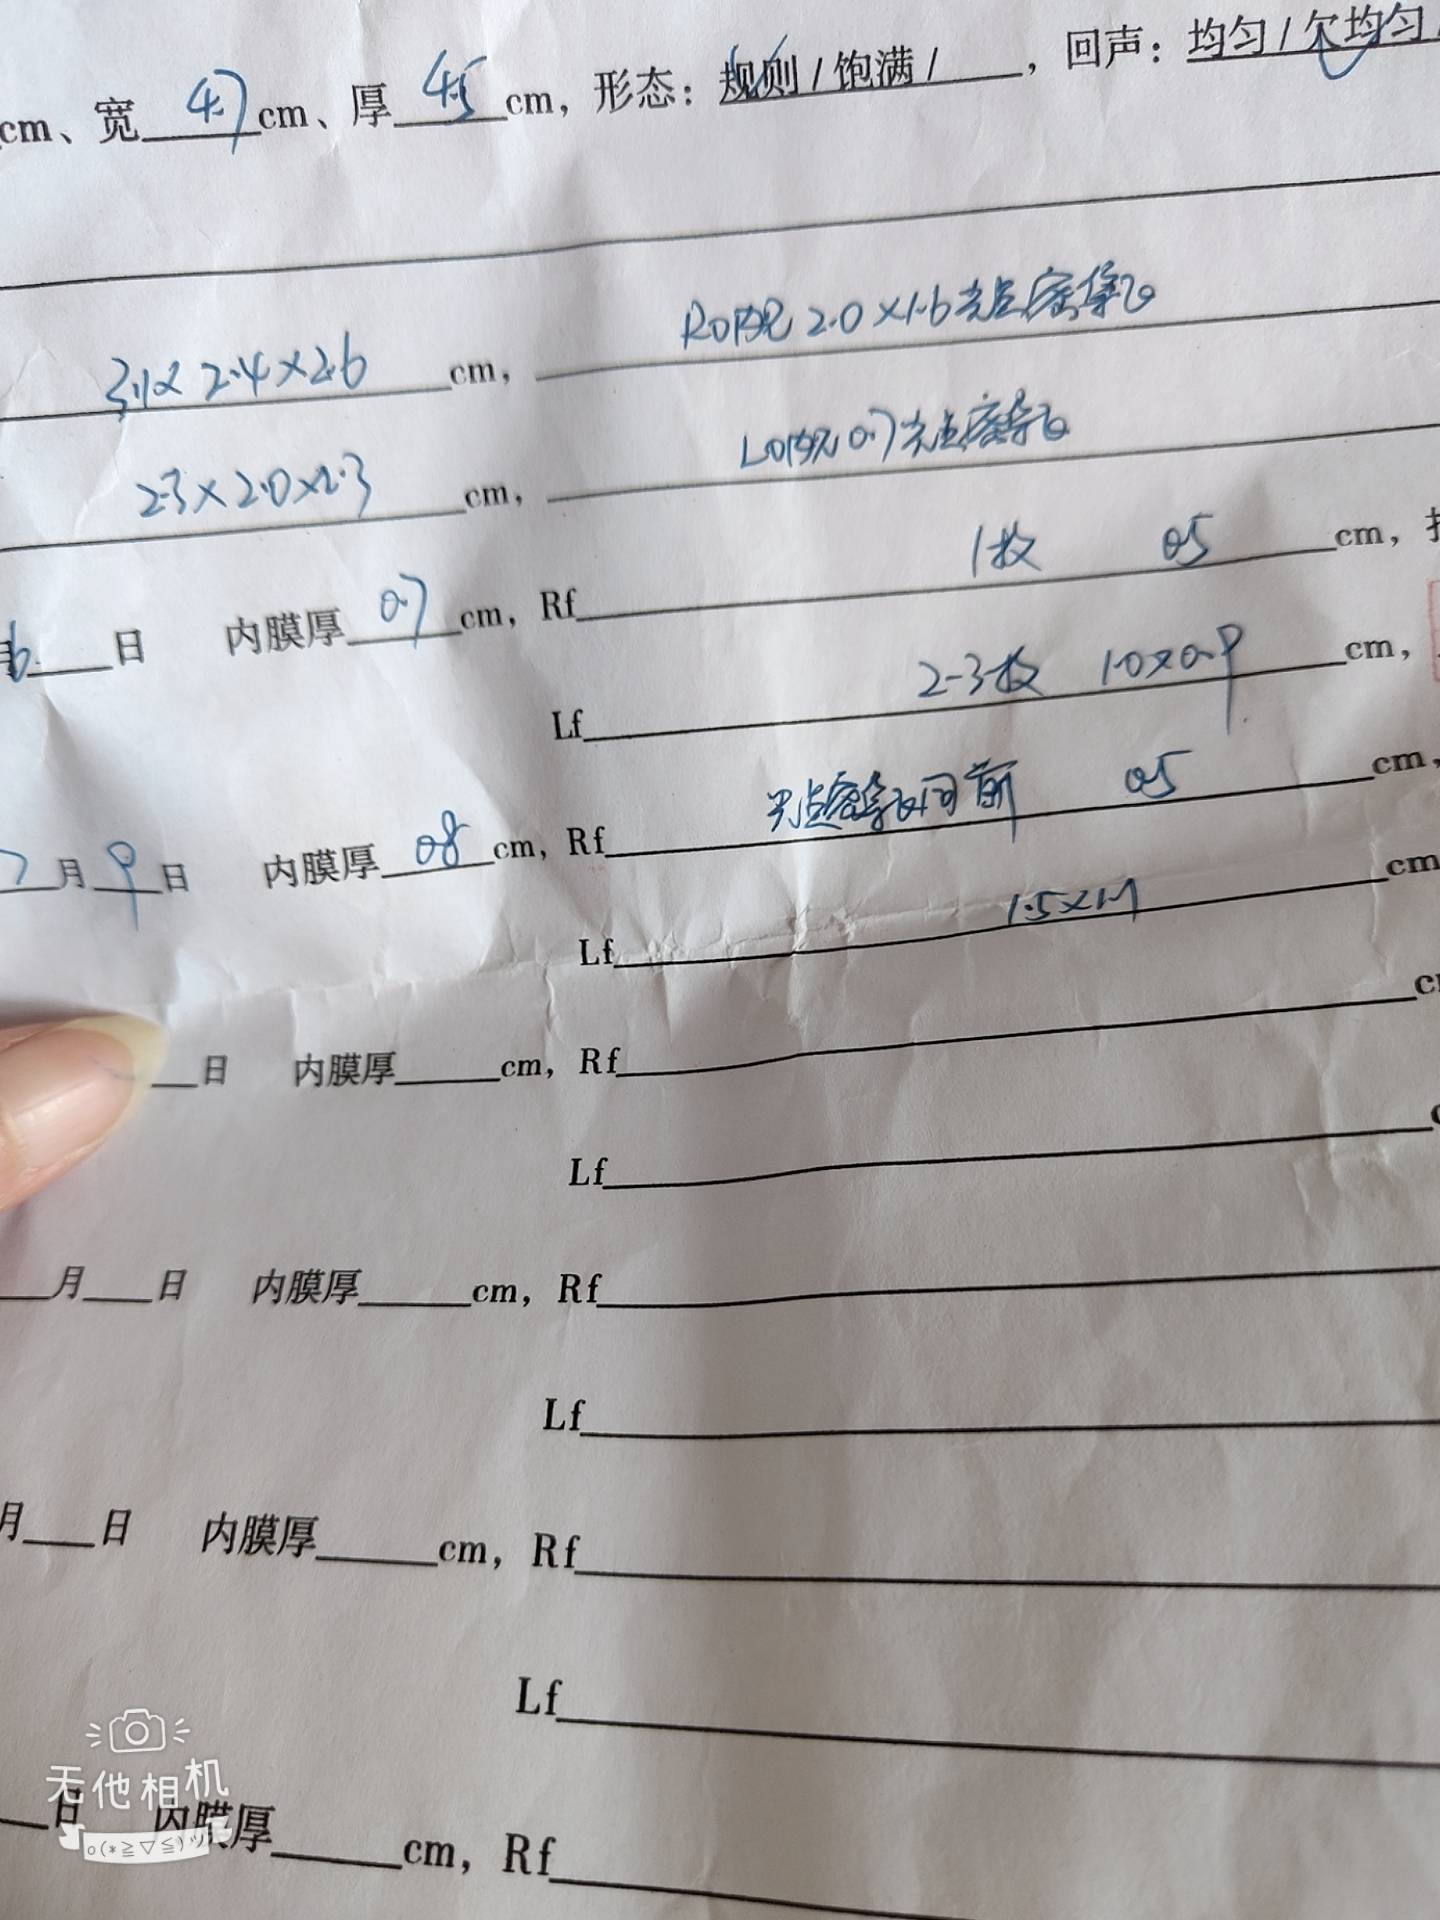 cm、宽 4.7 cm、厚 4.5 cm，形态：规则/饱满/ ，回声：均匀/欠均匀/
3.1× 2.4×2.6 cm， RO内见 2.0×1.6光点密集区
2.3×2.0×2.3 cm， LO内见0.7光点密集区
月6 日 内膜厚 0.7 cm，Rf 1枚 0.5 cm，
Lf 2-3枚 1.0×0.9 cm，
7月9日 内膜厚 0.8 cm，Rf 光点密集区同前 0.5 cm，
Lf 1.5×1.1 cm
日 内膜厚 cm，Rf c
Lf
月 日 内膜厚 cm，Rf
Lf
月 日 内膜厚 cm，Rf
Lf
日 内膜厚 cm，Rf
无他相机
o(*≧▽≦)ツ